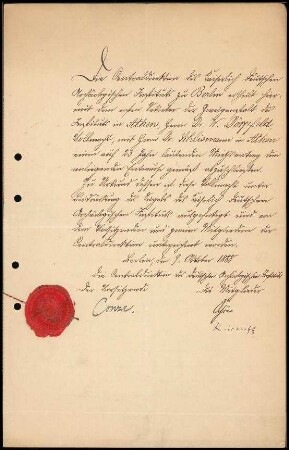 Die Centraldirektion des Kaiserlich Deutschen
Archäologischen Instituts zu Berlin ertheilt hier-
mit dem ersten Sekretar der Zweiganstalt des
Instituts in Athen, Herrn Dr. W. Dörpfeld
Vollmacht, mit Herrn Dr. Schliemann in Athen
einen auf Jahre lautenden Miethvertrag
abzuschliessen.
Zu Urkund dessen ist diese Vollmacht unter
des Siegels des Kaiserlich Deutschen
Archäologischen Instituts ausgefertigt und von
dem Vorsitzenden und zweien Mitgliedern der
Centraldirektion unterzeichnet worden.
Berlin, den 9. October 1888
Die Centraldirektion des deutschen Archäologischen Instituts
Der Vorsitzende Die Mitglieder
Conze.